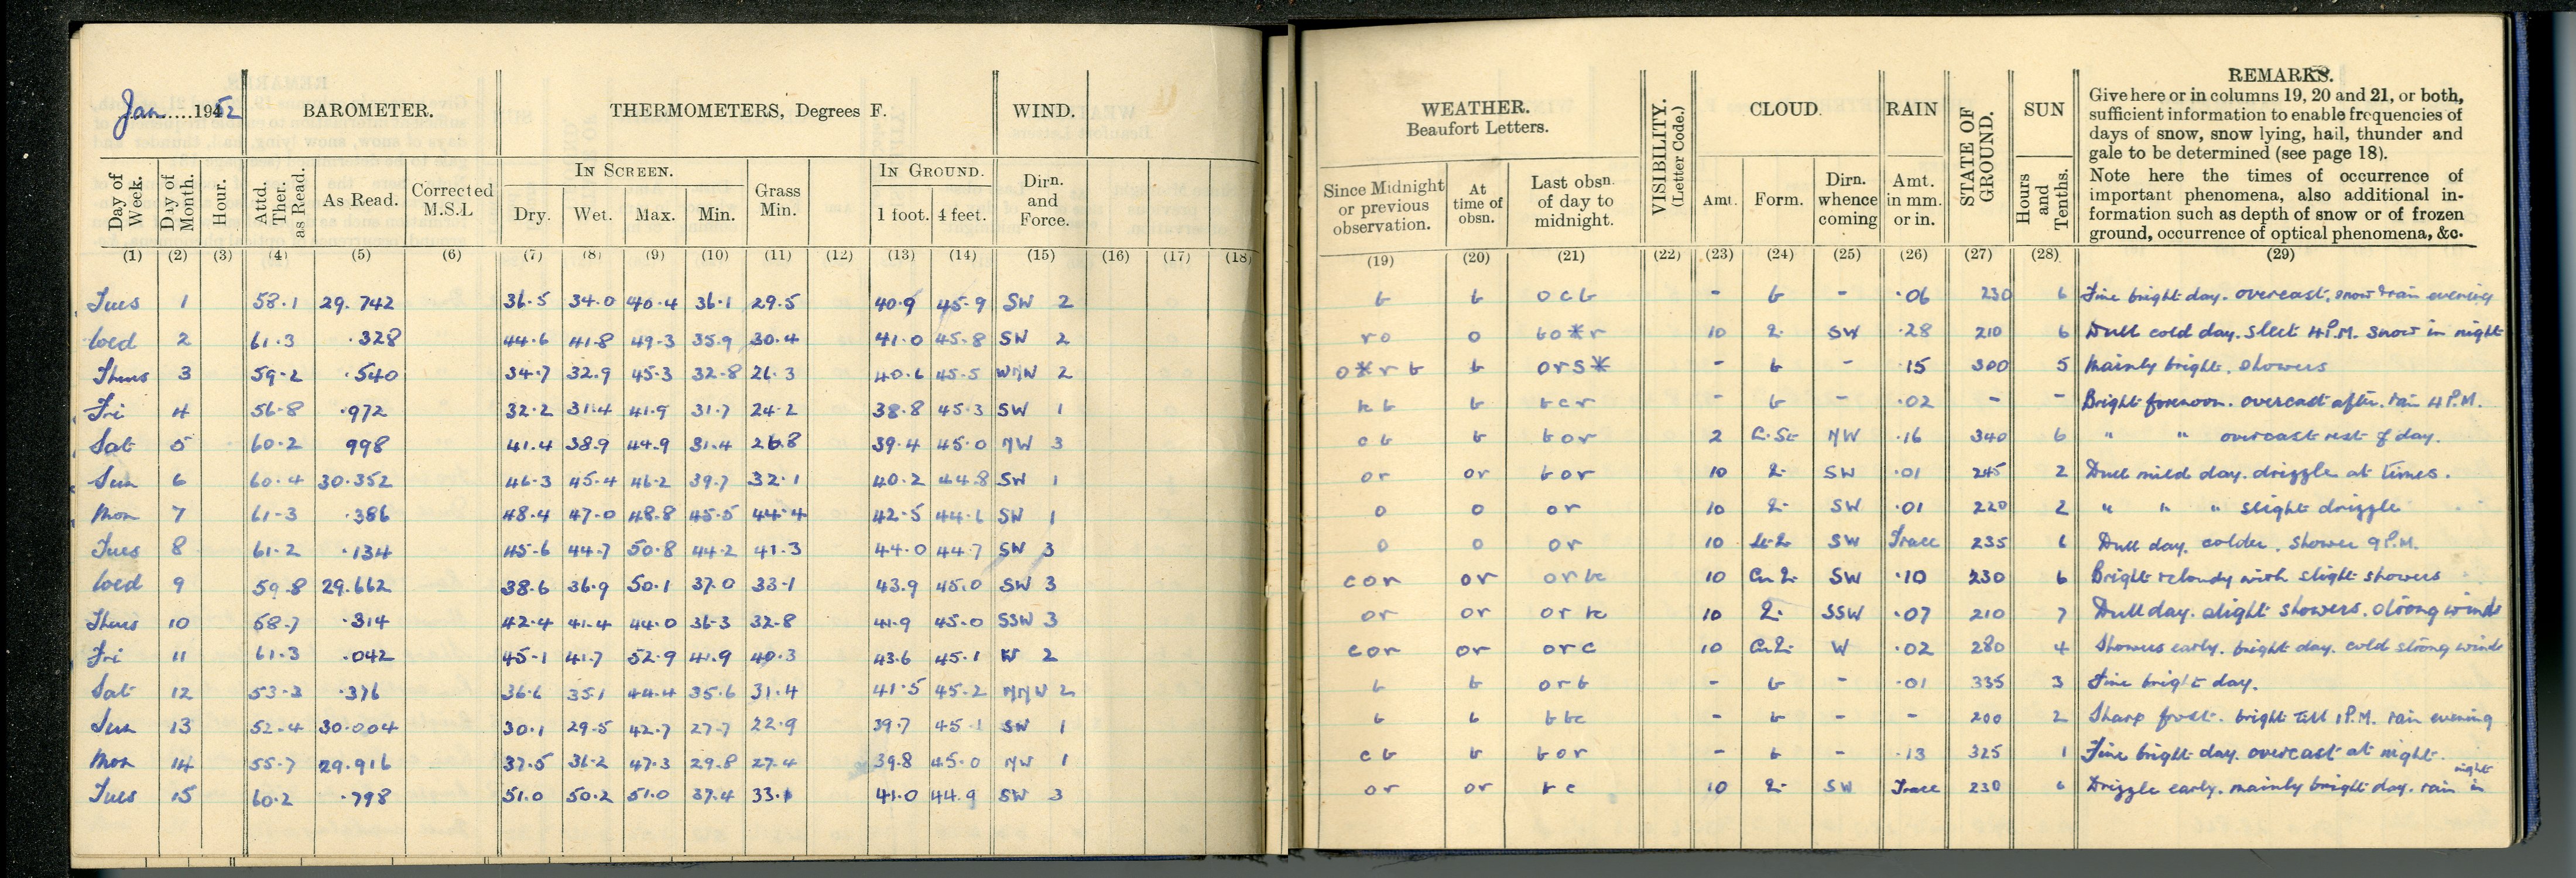 Jan 1952 BAROMETER. THERMOMETERS, Degrees F. WIND.
Day of Week. Day of Month. Hour. Attd. Ther. as Read. As Read. Corrected M.S.L IN SCREEN. Dry. Wet. Max. Min. Grass Min. IN GROUND. 1 foot. 4 feet. Dirn. and Force.
(1) (2) (3) (4) (5) (6) (7) (8) (9) (10) (11) (12) (13) (14) (15) (16) (17) (18)
Tues 1 58.1 29.742 36.5 34.0 40.4 36.1 29.5 40.9 45.9 SW 2
Wed 2 61.3 .328 44.6 41.8 49.3 35.9 30.4 41.0 45.8 SW 2
Thurs 3 59.2 .540 34.7 32.9 45.3 32.8 26.3 40.6 45.5 WNW 2
Fri 4 56.8 .972 32.2 31.4 41.9 31.7 24.2 38.8 45.3 SW 1
Sat 5 60.2 998 41.4 38.9 44.9 31.4 26.8 39.4 45.0 NW 3
Sun 6 60.4 30.352 46.3 45.4 46.2 39.7 32.1 40.2 44.8 SW 1
Mon 7 61.3 .386 48.4 47.0 48.8 45.5 44.4 42.5 44.6 SW 1
Tues 8 61.2 .134 45.6 44.7 50.8 44.2 41.3 44.0 44.7 SW 3
Wed 9 59.8 29.662 38.6 36.9 50.1 37.0 33.1 43.9 45.0 SW 3
Thurs 10 58.7 .314 42.4 41.4 44.0 36.3 32.8 41.9 45.0 SSW 3
Fri 11 61.3 .042 45.1 41.7 52.9 41.9 40.3 43.6 45.1 W 2
Sat 12 53.3 .376 36.6 35.1 44.4 35.6 31.4 41.5 45.2 NNW 2
Sun 13 52.4 30.004 30.1 29.5 42.7 27.7 22.9 39.7 45.1 SW 1
Mon 14 55.7 29.916 37.5 36.2 47.3 29.8 27.4 39.8 45.0 NW 1
Tues 15 60.2 .798 51.0 50.2 51.0 37.4 33.1 41.0 44.9 SW 3
WEATHER. Beaufort Letters. VISIBILITY. (Letter Code.) CLOUD. RAIN STATE OF GROUND. SUN REMARKS.
Since Midnight or previous observation. At time of obsn. Last obsn. of day to midnight. Amt. Form. Dirn. whence coming Amt. in mm. or in. Hours and Tenths.
Give here or in columns 19, 20 and 21, or both,
sufficient information to enable frequencies of
days of snow, snow lying, hail, thunder and
gale to be determined (see page 18).
Note here the times of occurrence of
important phenomena, also additional in-
formation such as depth of snow or of frozen
ground, occurrence of optical phenomena, &c.
(19) (20) (21) (22) (23) (24) (25) (26) (27) (28) (29)
b b ocb - b - .06 230 6 Fine bright day. overcast, snow & rain evening
ro o bo*r 10 SW .28 210 6 Dull cold day. sleet 4 P.M. snow in night
o*rb b ors* - b - .15 300 5 Mainly bright. showers
b b bcr - b - .02 - - Bright forenoon. overcast after. rain 4 P.M.
cb b bor 2 NW .16 340 6 " " overcast rest of day.
or or bor 10 SW .01 245 2 Dull mild day. drizzle at times.
o o or 10 SW .01 220 2 " " " slight drizzle
o o or 10 SW Trace 235 6 Dull day. colder. shower 9 P.M.
cor or 10 SW .10 230 6 Bright & cloudy with slight showers
or or 10 SSW .07 210 7 Dull day. slight showers. strong winds
cor or orc 10 W .02 280 4 Showers early. bright day. cold strong winds
b b orb - b - .01 335 3 Fine bright day.
b b - b - - 200 2 Sharp frost. bright till 1 P.M. rain evening
cb b bor - b - .13 325 1 Fine bright day. overcast at night.
or or 10 SW Trace 230 6 Drizzle early. mainly bright day. rain in night